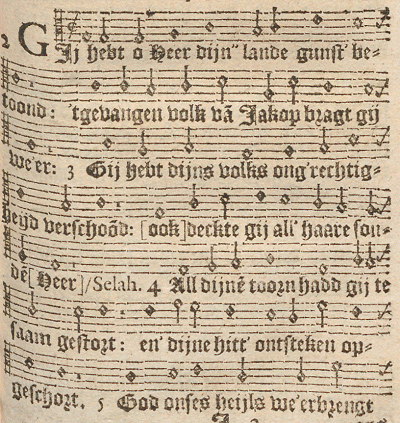 2 GIj hebt o Heer dijn" lande gunst' be=
toond: 'tgevangen volk vā Jakop bragt gij
we'er: 3 Gij hebt dijns volks ong'rechtig=
heijd verschoōd: [ook]deckte gij all' haare son-
dē[Heer]/Selah. 4 All dijnē toorn hadd gij te
saam gestort: en' dijne hitt' ontsteken op=
geschort. 5 God onses heijls we'erbrengt